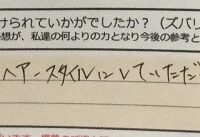 けられていかがでしたか？（ズバリ
想が、私達の何よりの力となり今後の参考と
ヘアースタイルにしていただ